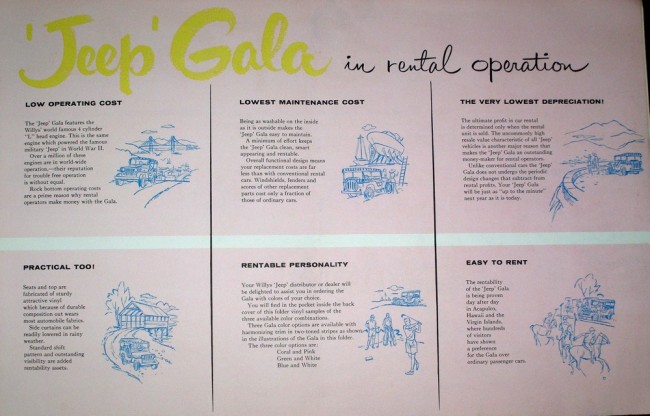 'Jeep' Gala in rental operation
LOW OPERATING COST
The 'Jeep' Gala features the
Willys' world famous 4 cylinder
"L" head engine. This is the same
engine which powered the famous
military 'Jeep' in World War II.
Over a million of these
engines are in world-wide
operation,—their reputation
for trouble free operation
is without equal.
Rock bottom operating costs
are a prime reason why rental
operators make money with the Gala.
LOWEST MAINTENANCE COST
Being as washable on the inside
as it is outside makes the
'Jeep' Gala easy to maintain.
A minimum of effort keeps
the 'Jeep' Gala clean, smart
appearing and rentable.
Overall functional design means
your replacement costs are far
less than with conventional rental
cars. Windshields, fenders and
scores of other replacement
parts cost only a fraction of
those of ordinary cars.
THE VERY LOWEST DEPRECIATION!
The ultimate profit in car rental
is determined only when the rental
unit is sold. The uncommonly high
resale value characteristic of all 'Jeep'
vehicles is another major reason that
makes the 'Jeep' Gala an outstanding
money-maker for rental operators.
Unlike conventional cars the 'Jeep'
Gala does not undergo the periodic
design changes that subtract from
rental profits. Your 'Jeep' Gala
will be just as "up to the minute"
next year as it is today.
PRACTICAL TOO!
Seats and top are
fabricated of sturdy
attractive vinyl
which because of durable
composition out wears
most automobile fabrics.
Side curtains can be
readily lowered in rainy
weather.
Standard shift
pattern and outstanding
visibility are added
rentability assets.
RENTABLE PERSONALITY
Your Willys 'Jeep' distributor or dealer will
be delighted to assist you in ordering the
Gala with colors of your choice.
You will find in the pocket inside the back
cover of this folder vinyl samples of the
three available color combinations.
Three Gala color options are available with
harmonizing trim in two toned stripes as shown
in the illustrations of the Gala in this folder.
The three color options are:
Coral and Pink
Green and White
Blue and White
EASY TO RENT
The rentability
of the 'Jeep' Gala
is being proven
day after day
in Acapulco,
Hawaii and the
Virgin Islands,
where hundreds
of visitors
have shown
a preference
for the Gala over
ordinary passenger cars.